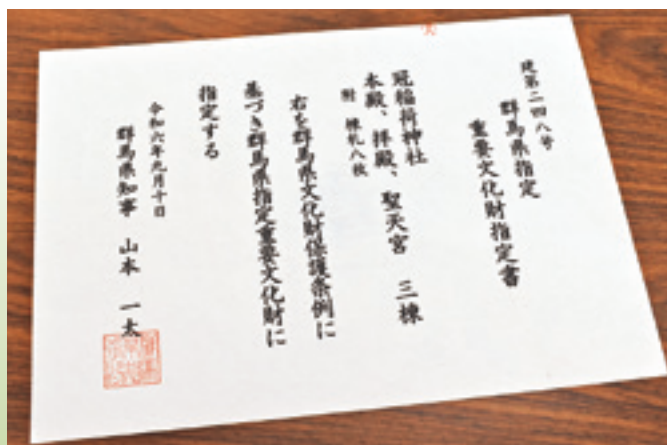 建第二四八号
群馬県指定
重要文化財指定書
冠稲荷神社
本殿、拝殿、聖天宮 三棟
附 棟札八枚
右を群馬県文化財保護条例に
基づき群馬県指定重要文化財に
指定する
令和六年九月十日
群馬県知事 山本 一太